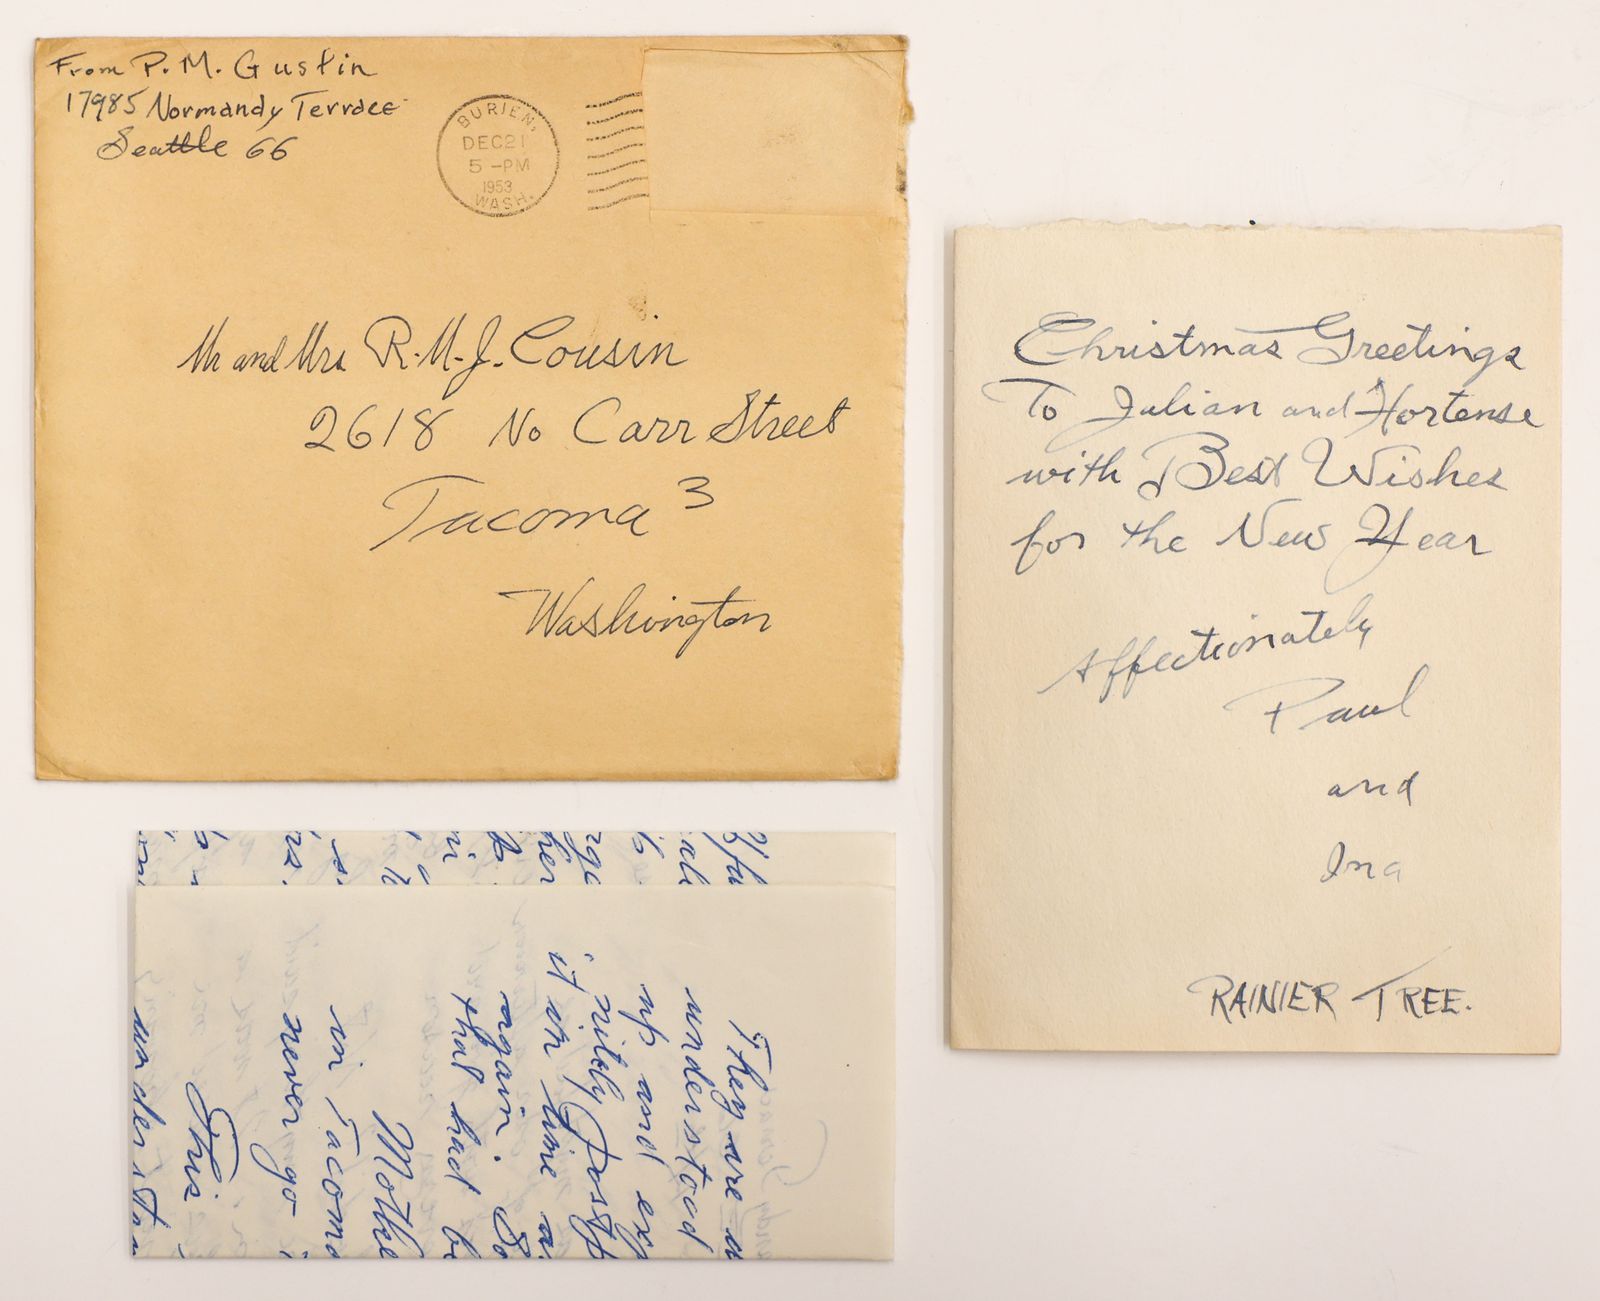 From P. M. Gustin
17985 Normandy Terrace
Seattle 66
BURIEN,
DEC 21
5 -PM
1953
WASH.
Mr and Mrs R. M. J. Cousin
2618 No Carr Street
Tacoma 3
Washington
Christmas Greetings
To Julian and Hortense
with Best Wishes
for the New Year
Affectionately
Paul
and
Ina
RAINIER TREE.
They are
understood
up and
nitely Post
it in time
again. So
that had
Mothe
in Tacoma
never go
This
under